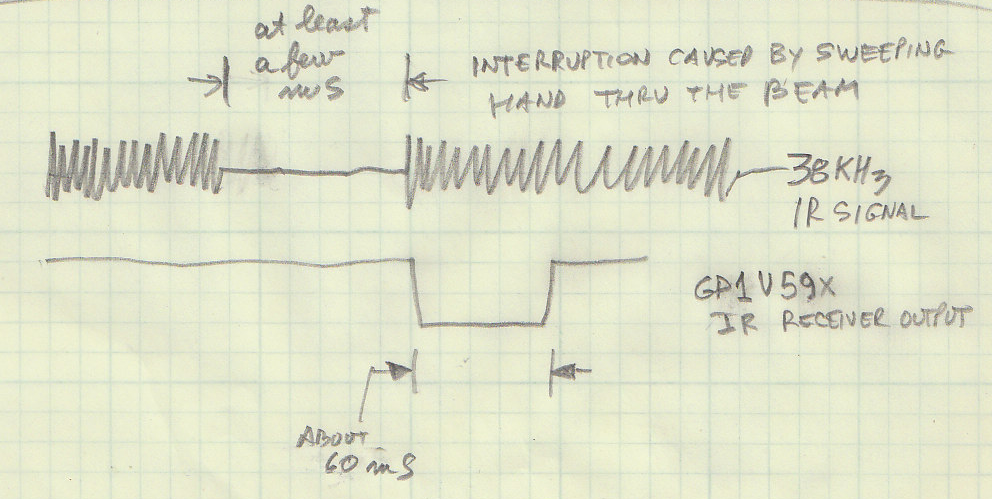 at least
a few
mS
INTERRUPTION CAUSED BY SWEEPING
HAND THRU THE BEAM
38KHz
IR SIGNAL
GP1U59X
IR RECEIVER OUTPUT
ABOUT
60 mS